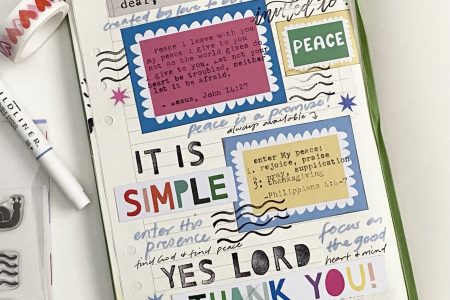 dear,
created by love to be
invited to
Peace I leave with you
My peace I give to you
Not as the world gives do
I give to you. Let not your
heart be troubled, neither
let it be afraid.
- Jesus, John 14:27
PEACE
peace is a promise!
always available
IT IS
SIMPLE
enter My peace:
1. rejoice, praise
2. pray, supplication
3. thanksgiving
-Philippians 4:4-7
enter His
presence
find God & find peace
focus on
the good
heart & mind
YES LORD
THANK YOU!
MILDLINER